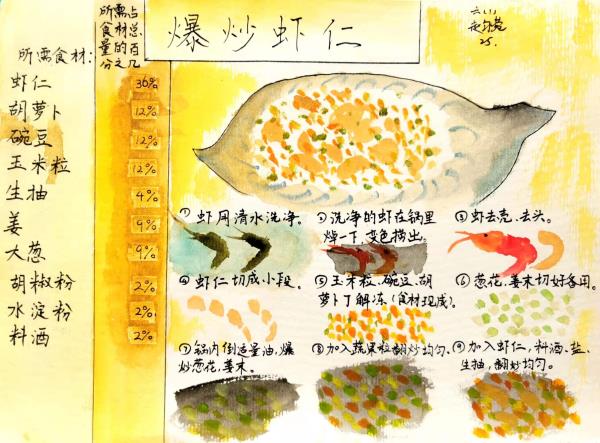 爆炒虾仁
六(1)
25.
所需占
食材总
量的百
分之几
所需食材:
虾仁 36%
胡萝卜 12%
豌豆 12%
玉米粒 12%
生抽 4%
姜 9%
大葱 9%
胡椒粉 2%
水淀粉 2%
料酒 2%
①虾用清水洗净。
②洗净的虾在锅里
焯一下,变色捞出。
③虾去壳、去头。
④虾仁切成小段。
⑤玉米粒、豌豆、胡
萝卜丁解冻(食材现成)。
⑥葱花、姜末切好备用。
⑦锅内倒适量油,爆
炒葱花,姜末。
⑧加入蔬果粒翻炒均匀、
⑨加入虾仁,料酒、盐、
生抽,翻炒均匀。